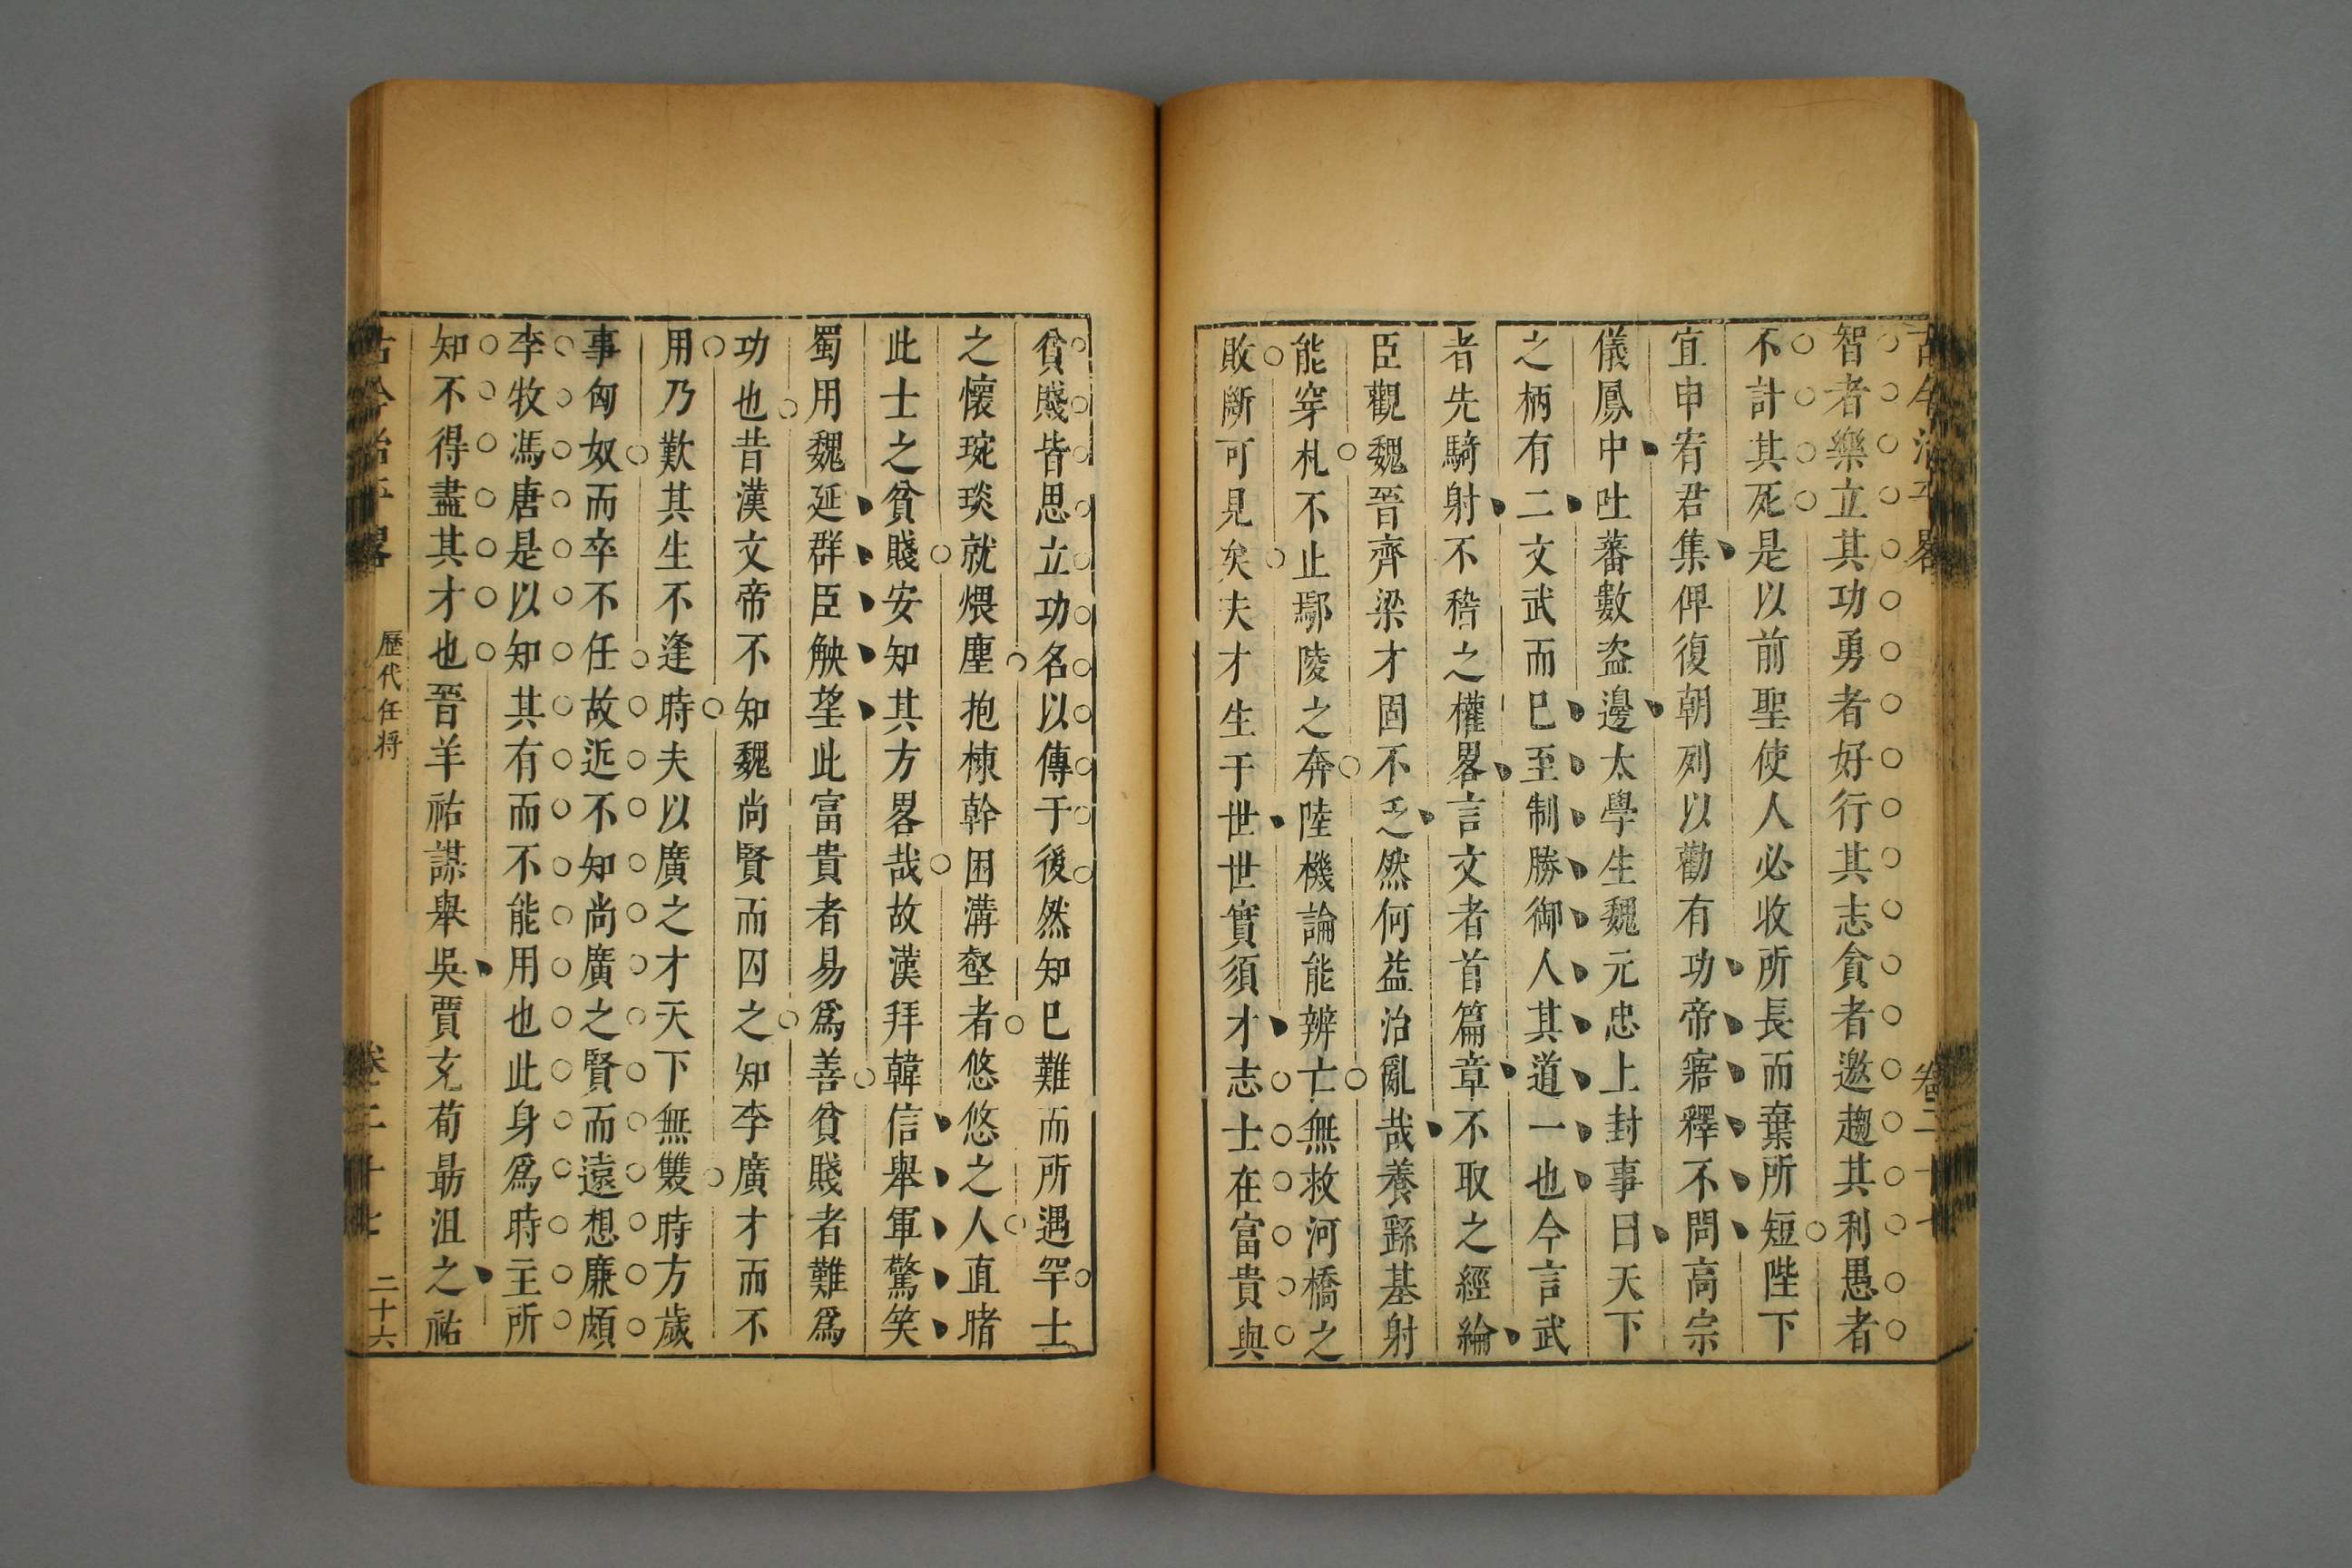 智者樂立其功勇者好行其志貪者邀趨其利愚者
不計其死是以前聖使人必收所長而棄所短陛下
宜申宥君集俾復朝列以勸有功帝寤釋不問高宗
儀鳳中吐蕃數盗邊太學生魏元忠上封事曰天下
之柄有二文武而已至制勝御人其道一也今言武
者先騎射不稽之權畧言文者首篇章不取之經綸
臣觀魏晉齊梁才固不乏然何益治亂哉養繇基射
能穿札不止鄢陵之奔陸機論能辨亡無救河橋之
敗斷可見矣夫才生于世世實須才志士在富貴與
貧賤皆思立功名以傳于後然知已難而所遇罕士
之懷琬琰就煨塵抱棟幹困溝壑者悠悠之人直睹
此士之貧賤安知其方畧哉故漢拜韓信舉軍驚笑
蜀用魏延群臣觖望此富貴者易爲善貧賤者難爲
功也昔漢文帝不知魏尚賢而囚之知李廣才而不
用乃歎其生不逢時夫以廣之才天下無雙時方歲
事匈奴而卒不任故近不知尚廣之賢而遠想廉頗
李牧馮唐是以知其有而不能用也此身爲時主所
知不得盡其才也晉羊祜謀舉吳賈充荀勗沮之祜
古今治平畧
歷代任将
卷二十七
二十六